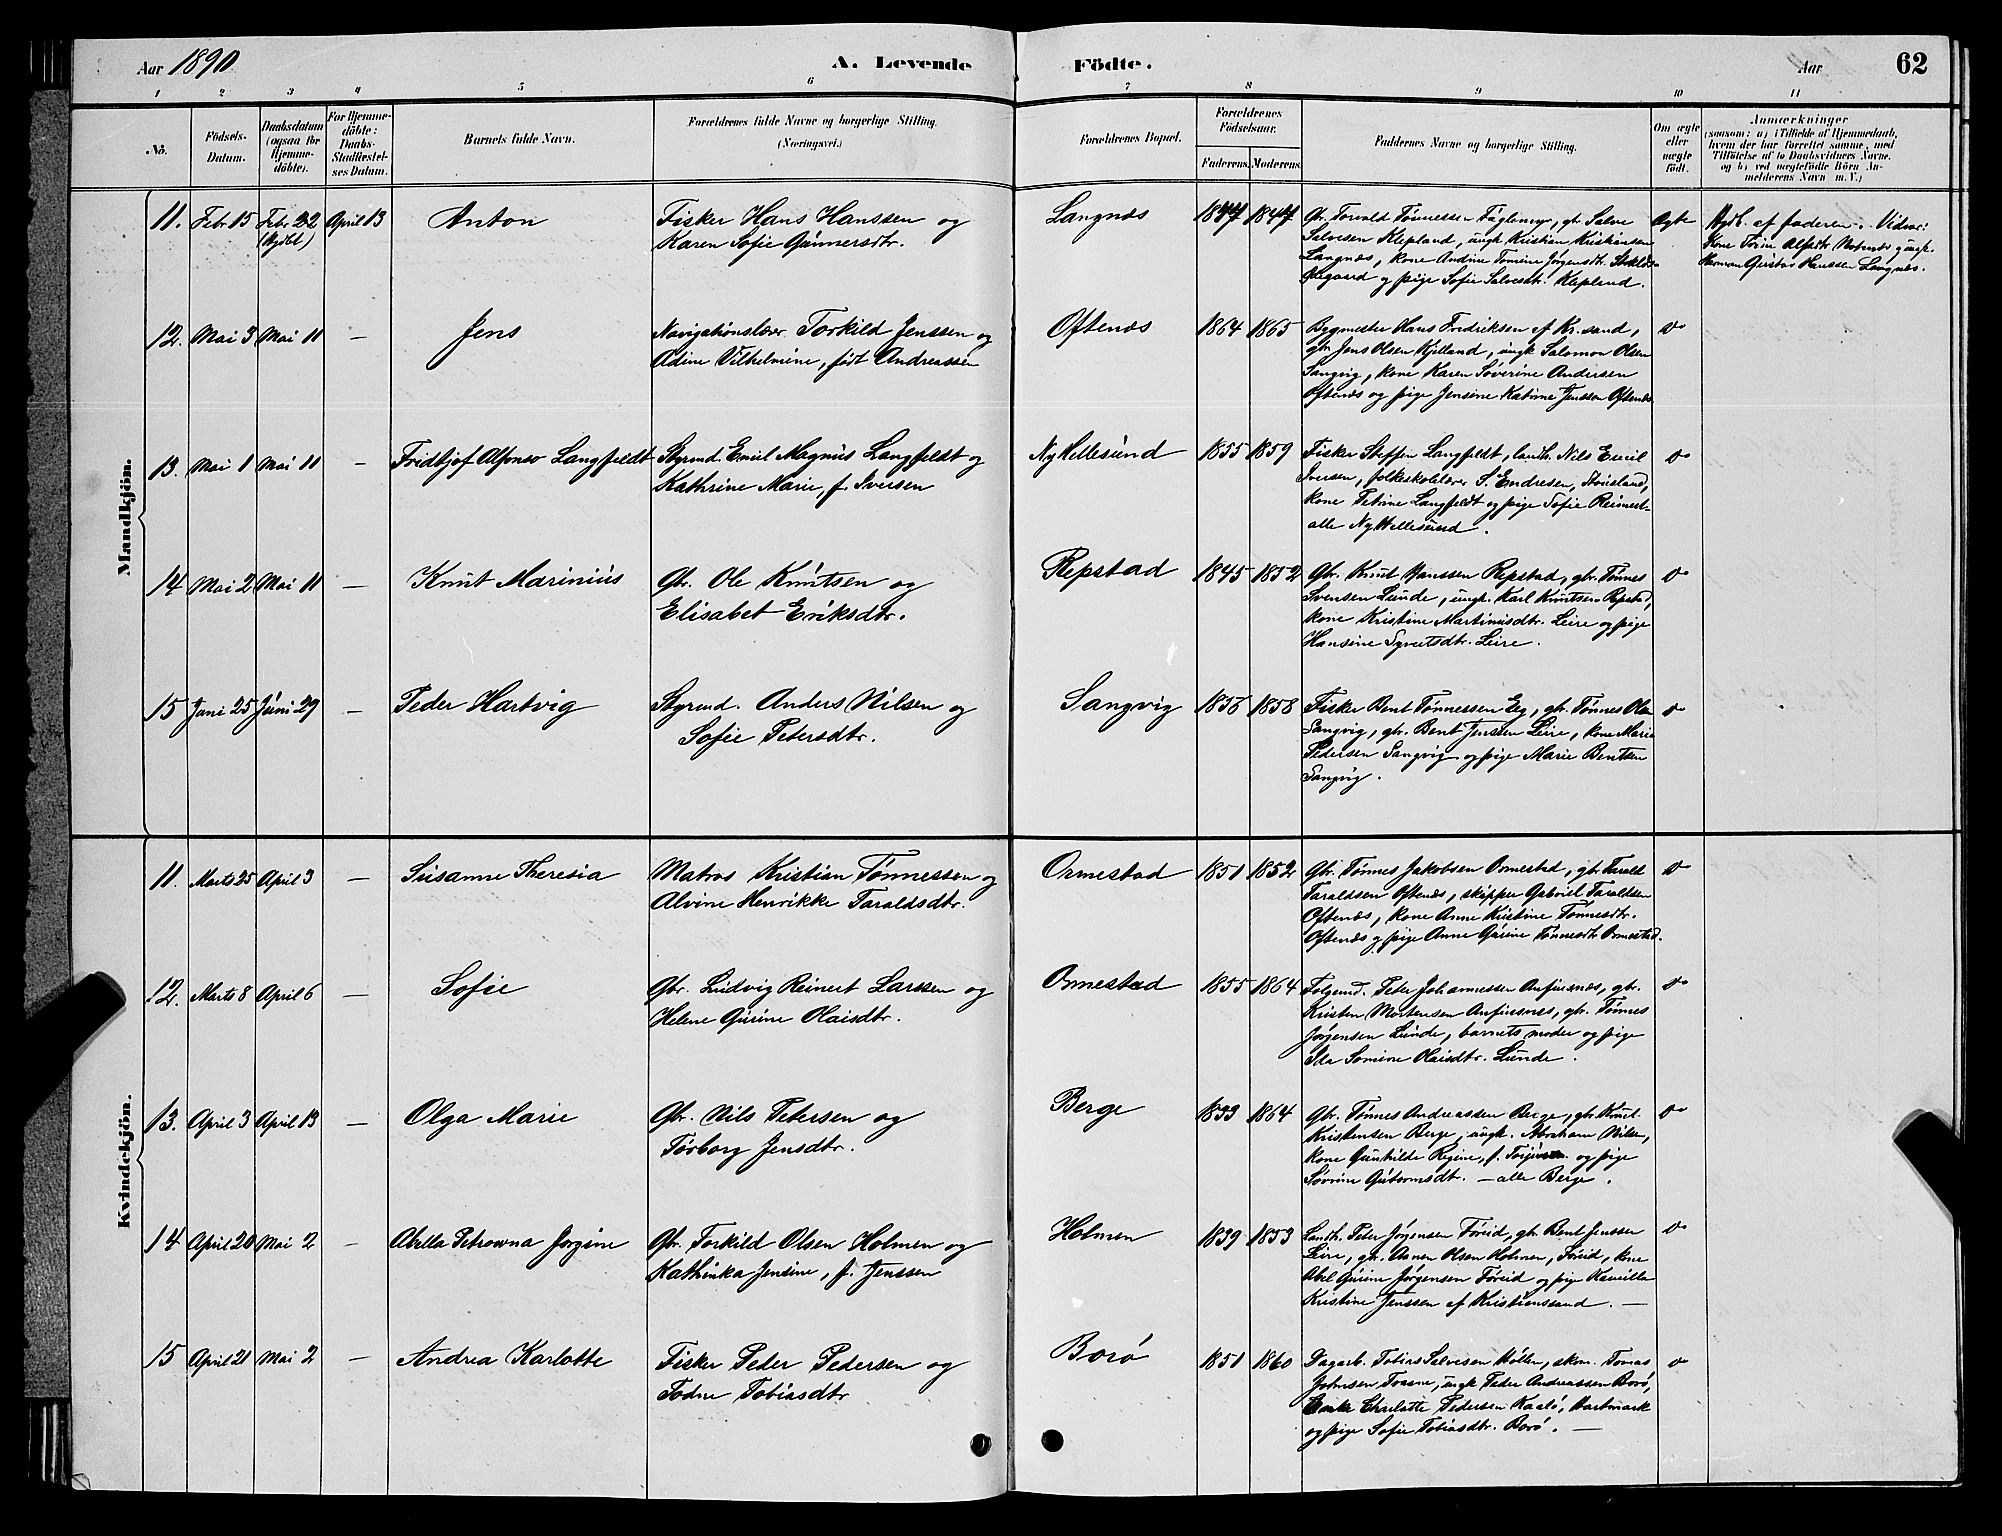 Aar 1890
A. Levende
Födte.
Aar
62
1 2 3 4 5 6 7 8 9 10 11
No.
Födsels-
Datum.
Daabsdatum
(ogsaa for
Hjemme-
döbte).
For Hjemme-
döbte:
Daabs-
Stadfæstel-
ses Datum.
Barnets fulde Navn.
Forældrenes fulde Navne og borgerlige Stilling.
(Næringsvei.)
Forældrenes Bopæl.
Forældrenes
Födselsaar.
Faderens.
Moderens.
Faddernes Navne og borgerlige Stilling.
Om ægte
eller
uægte
födt.
Anmærkninger
(saasom: a) i Tilfælde af Hjemmedaab,
hvem der har forrettet samme, med
Tilföielse af to Daabsvidners Navne,
og b) ved uægtefödte Börn An-
melderens Navn m. V.)
Mandkjön.
11. Febr 15 Febr 22 April 13 Anton
(Hjdbt)
Fisker Hans Hanssen og
Karen Sofie Gunnersdtr.
Langnæs 1847 1847
Gbr. Torvald Tønnessen Fuglemyr, gb. Salve
Salvesen Klepland, ungk. Kristian Kristiansen
Langnæs, kone Andine Tomine Jørgensdtr.
og pige Sofie Salvesdtr. Klepland.
Ægte
Hjdb. af faderen. Vidner:
Kone
Herman Gustav Hanssen Langnæs.
12. Mai 3 Mai 11 – Jens
Navigationslærer Torkild Jenssen og
Adine Vilhelmine, født Andreassen
Oftenæs 1864 1865
Bygmester Hans Fredriksen af Kr.sand,
gbr. Jens Olsen Kjelland, ungk. Salomon Olsen
Sangvig, kone Karen Severine Andersen
Oftenæs og pige Jensine Katrine Jenssen Oftenæs
do
13. Mai 1 Mai 11 – Fridtjof Alfonso Langfeldt
Styrmd. Emil Magnus Langfeldt og
Kathrine Marie, f. Iversen
Ny Hellesund 1855 1859
Fisker Steffen Langfeldt, landh. Nils Emil
Iversen, folkeskolelærer S. Endresen,
kone Petrine Langfeldt og pige Sofie
alle Ny Hellesund.
do
14 Mai 2 Mai 11 – Knut Marinius
Gbr. Ole Knutsen og
Elisabet Eriksdtr.
Repstad 1845 1852
Gbr. Knut Hanssen Repstad, gbr. Tønnes
Svensen Lunde, ungk. Karl Knutsen Repstad,
kone Kristine Martinusdtr. Leire og pige
Hansine Syvertsdtr. Leire.
do
15 Juni 25 Juni 29 – Peder Hartvig
Styrmd. Anders Nilsen og
Sofie Petersdtr.
Sangvig 1856 1858
Fisker Bent Tønnessen Eeg, gbr. Tønnes Olsen
Sangvig, gbr. Bent Jenssen Leire, kone Marie
Pedersen Sangvig og pige Marie Bentsen
Sangvig.
do
Kvindekjön.
11. Marts 25 April 3 – Susanne Theresia
Matros Kristian Tønnessen og
Alvine Henrikke Taraldsdtr.
Ormestad 1851 1852
Gbr. Tønnes Jakobsen Ormestad, gbr. Taralt
Taraldsen Oftenæs, skipper Gabriel Taraldsen
Oftenæs, kone Anne Kristine Tønnesdtr.
Oftenæs og pige Anne Gurine Tønnesdtr. Ormestad.
do
12. Marts 8 April 6 – Sofie
Gbr. Ludvig Reinert Larssen og
Helene Gurine Olaisdtr.
Ormestad 1855 1864
Folgemd. Peter Johannessen Anfinsnæs, gbr.
Kristen Mortensen Anfinsnæs, gbr. Tønnes
Jørgensen Lunde, barnets moder og pige
Ida Tomine Olaisdtr. Lunde.
do
13. April 3 April 13 – Olga Marie
Gbr. Nils Petersen og
Torborg Jensdtr.
Berge 1853 1864
Gbr. Tønnes Andreassen Berge, gbr. Knut
Kristensen Berge, ungk. Abraham Nilsen,
kone Gunhilde Regine, f. og pige
Søvrine Gutormsdtr. – alle Berge.
do
14 April 20 Mai 2 – Abella Petrowna Jorgine
Gbr. Torkild Olsen Holmen og
Kathinka Jensine, f. Jenssen
Holmen 1839 1853
Landh. Peter Jørgensen Føreid, gbr. Bent Jenssen
Leire, gbr. Asner Olsen Holmen, Føreid, kone
Abel Gurine Jørgensen Føreid og pige Kamilla
Kristine Jenssen af Kristianssand. –
do
15 April 21 Mai 2 – Andrea Karlotte
Fisker Peder Pedersen og
Todne Tobiasdtr
Borø 1851 1860
Dagarb. Tobias Salvesen Møllen, skom. Tomas
Johnsen Toane, ungk Peder Andreassen Borø,
Charlotte Pedersen Kaalø, Hartmark
og pige Sofie Tobiasdtr. Borø. –
do